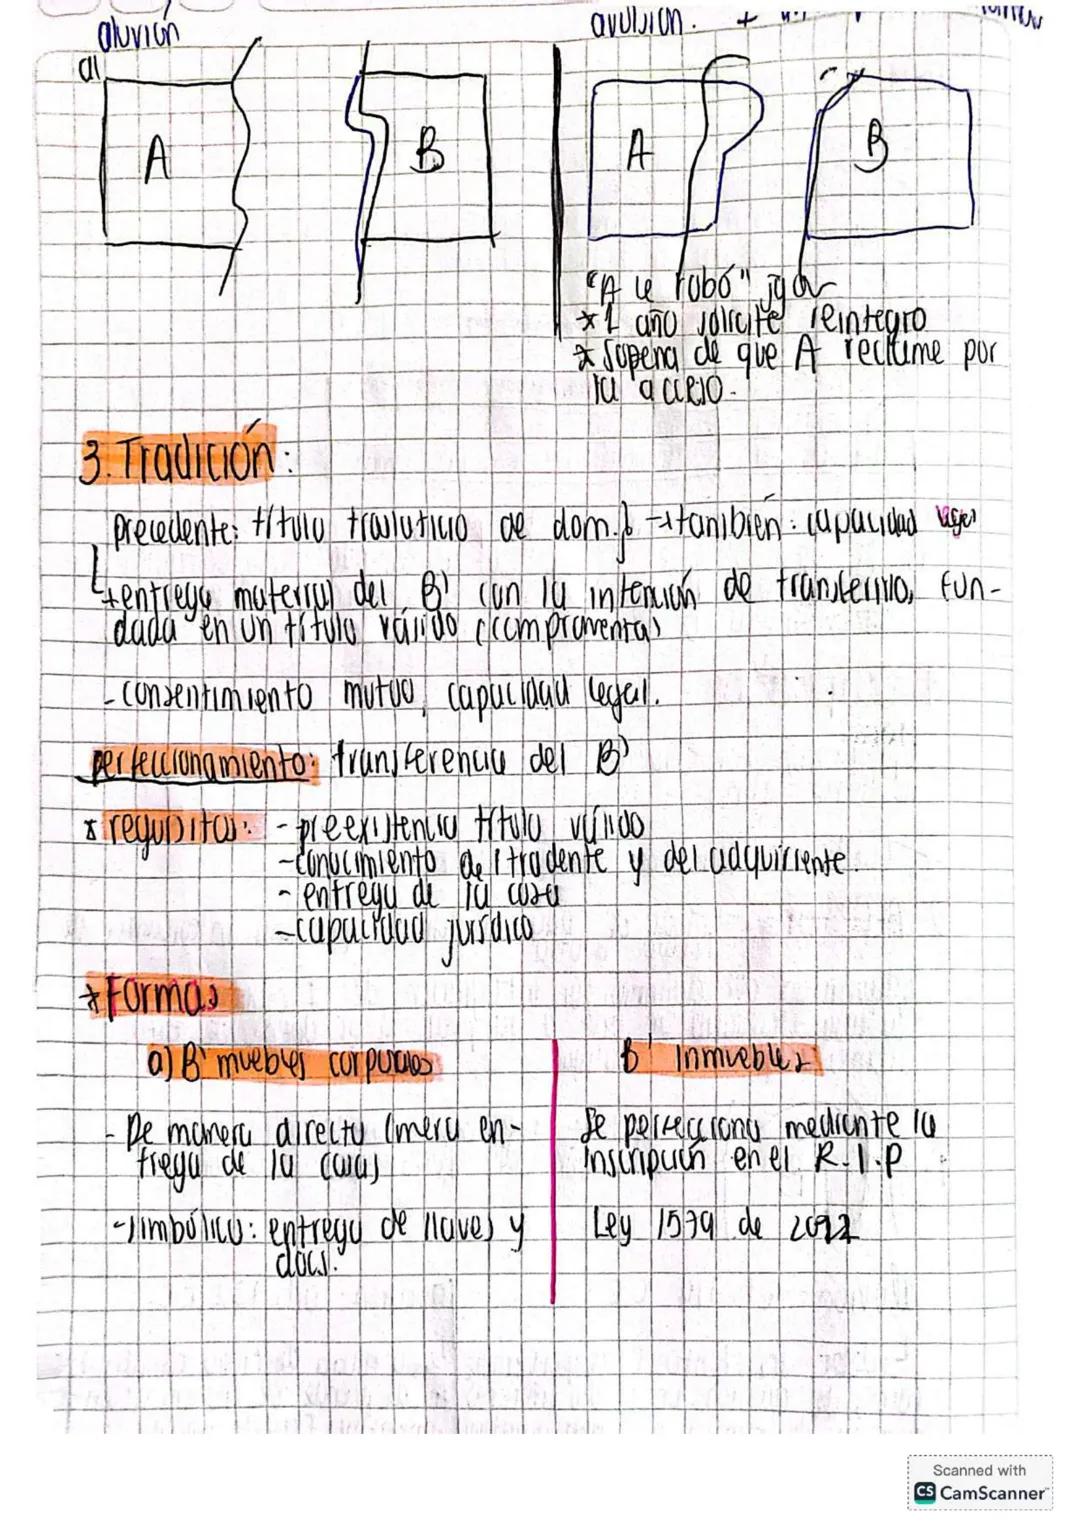 aluvión
avulsión. +
a)
A
B
A
B
"A le robó" jaja
* 1 año solicite reintegro
* So pena de que A reclame por
la acceso.
3. Tradición:
precedente: título traslaticio de dom. → también: capacidad legal
→ entrega material del B' con la intención de transferirlo, fun-
dada en un título válido (compraventa)
- consentimiento mutuo, capacidad legal.
perfeccionamiento: transferencia del B'
* requisitos: - preexistencia título válido
- conocimiento del tradente y del adquiriente.
- entrega de la cosa
- capacidad jurídica
* Formas
a) B' muebles corporales
B' Inmuebles
- De manera directa (mera en-
trega de la cosa)
- simbólica: entrega de llaves y
docs.
Se perfecciona mediante la
inscripción en el R.I.P
Ley 1579 de 2012
Scanned with
CS CamScanner